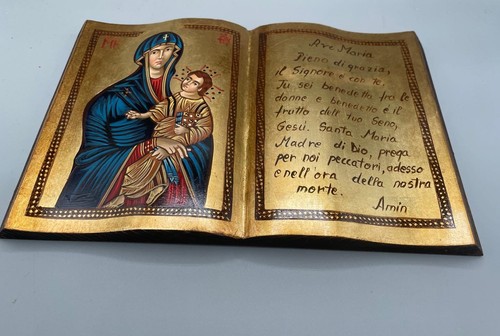 Ave Maria
Piena di grazia,
il Signore è con te.
Tu sei benedetta fra le
donne e benedetto è il
frutto dell tuo Seno,
Gesù. Santa Maria
Madre di Dio, prega
per noi peccatori, adesso
e nell ora della nostra
morte.
Amin